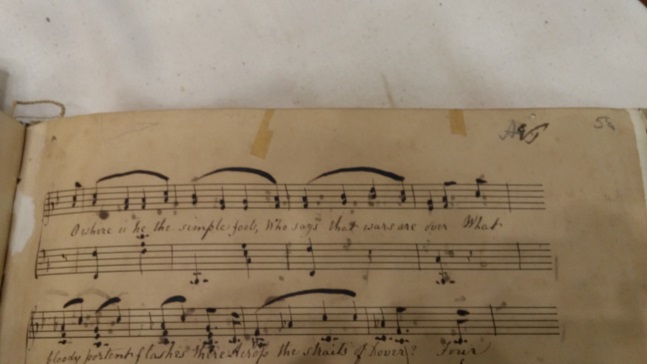 58
O where is he the simple fool, Who says that wars are over What
bloody portent flashes there Across the straits of Dover? Four